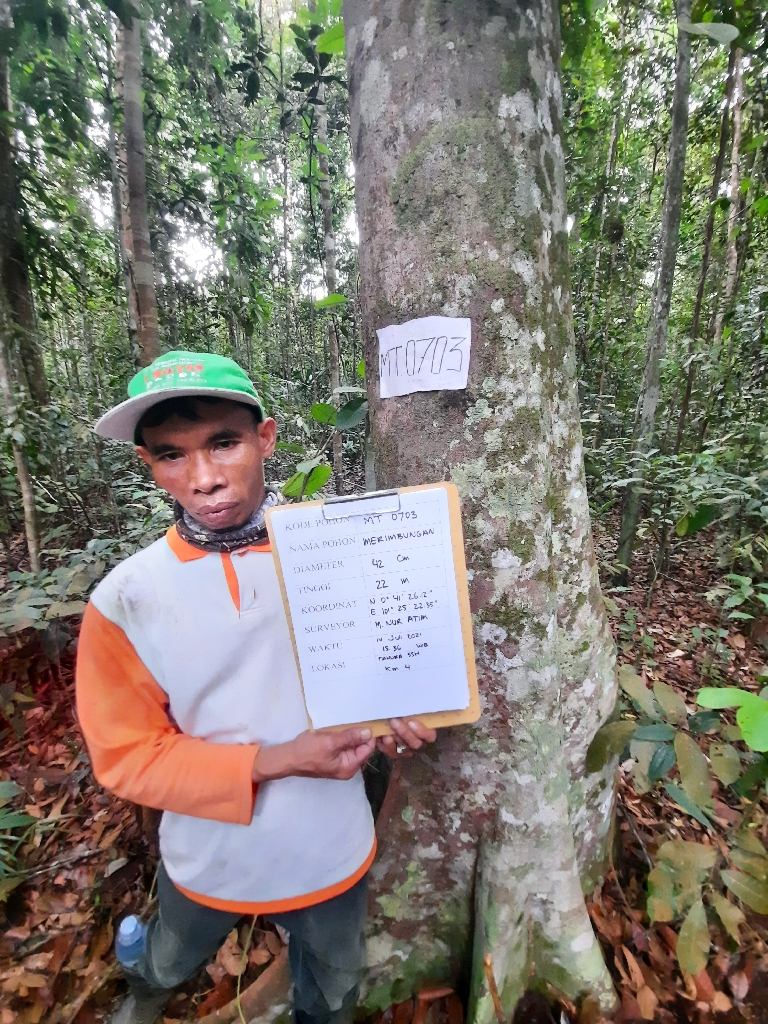 MT 0703
KODE POHON MT 0703
NAMA POHON MERIMBUNGAN
DIAMETER 42 Cm
TINGGI 22 m
KOORDINAT N 0° 41' 26.2"
E 101° 25' 22.35"
SURVEYOR M. NUR ATIM
WAKTU 14 JULI 2021
15.36 WIB
LOKASI TAHURA SSH
Km 4